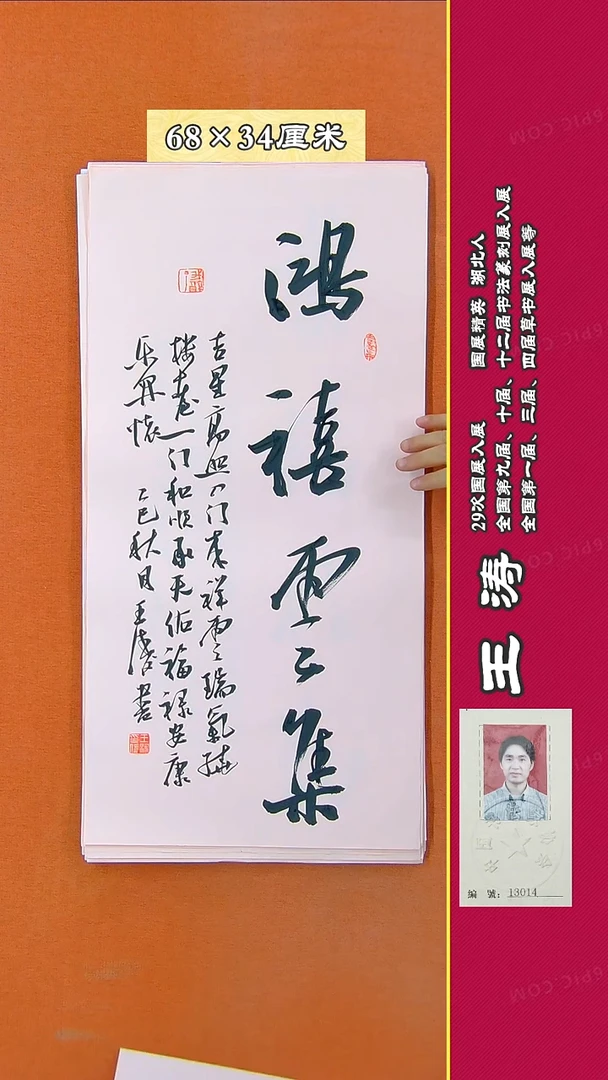 68×34厘米
鴻禧雲集
吉星高照入門來祥雲瑞氣繞
樓臺一門和順承天佑福禄安康
樂開懷 乙巳秋月王涛書
王涛
29次国展入展 国展精英 湖北人
全国第九届、十届、十二届书法篆刻展入展
全国第一届、三届、四届草书展入展等
编號：13014
6PIC.COM